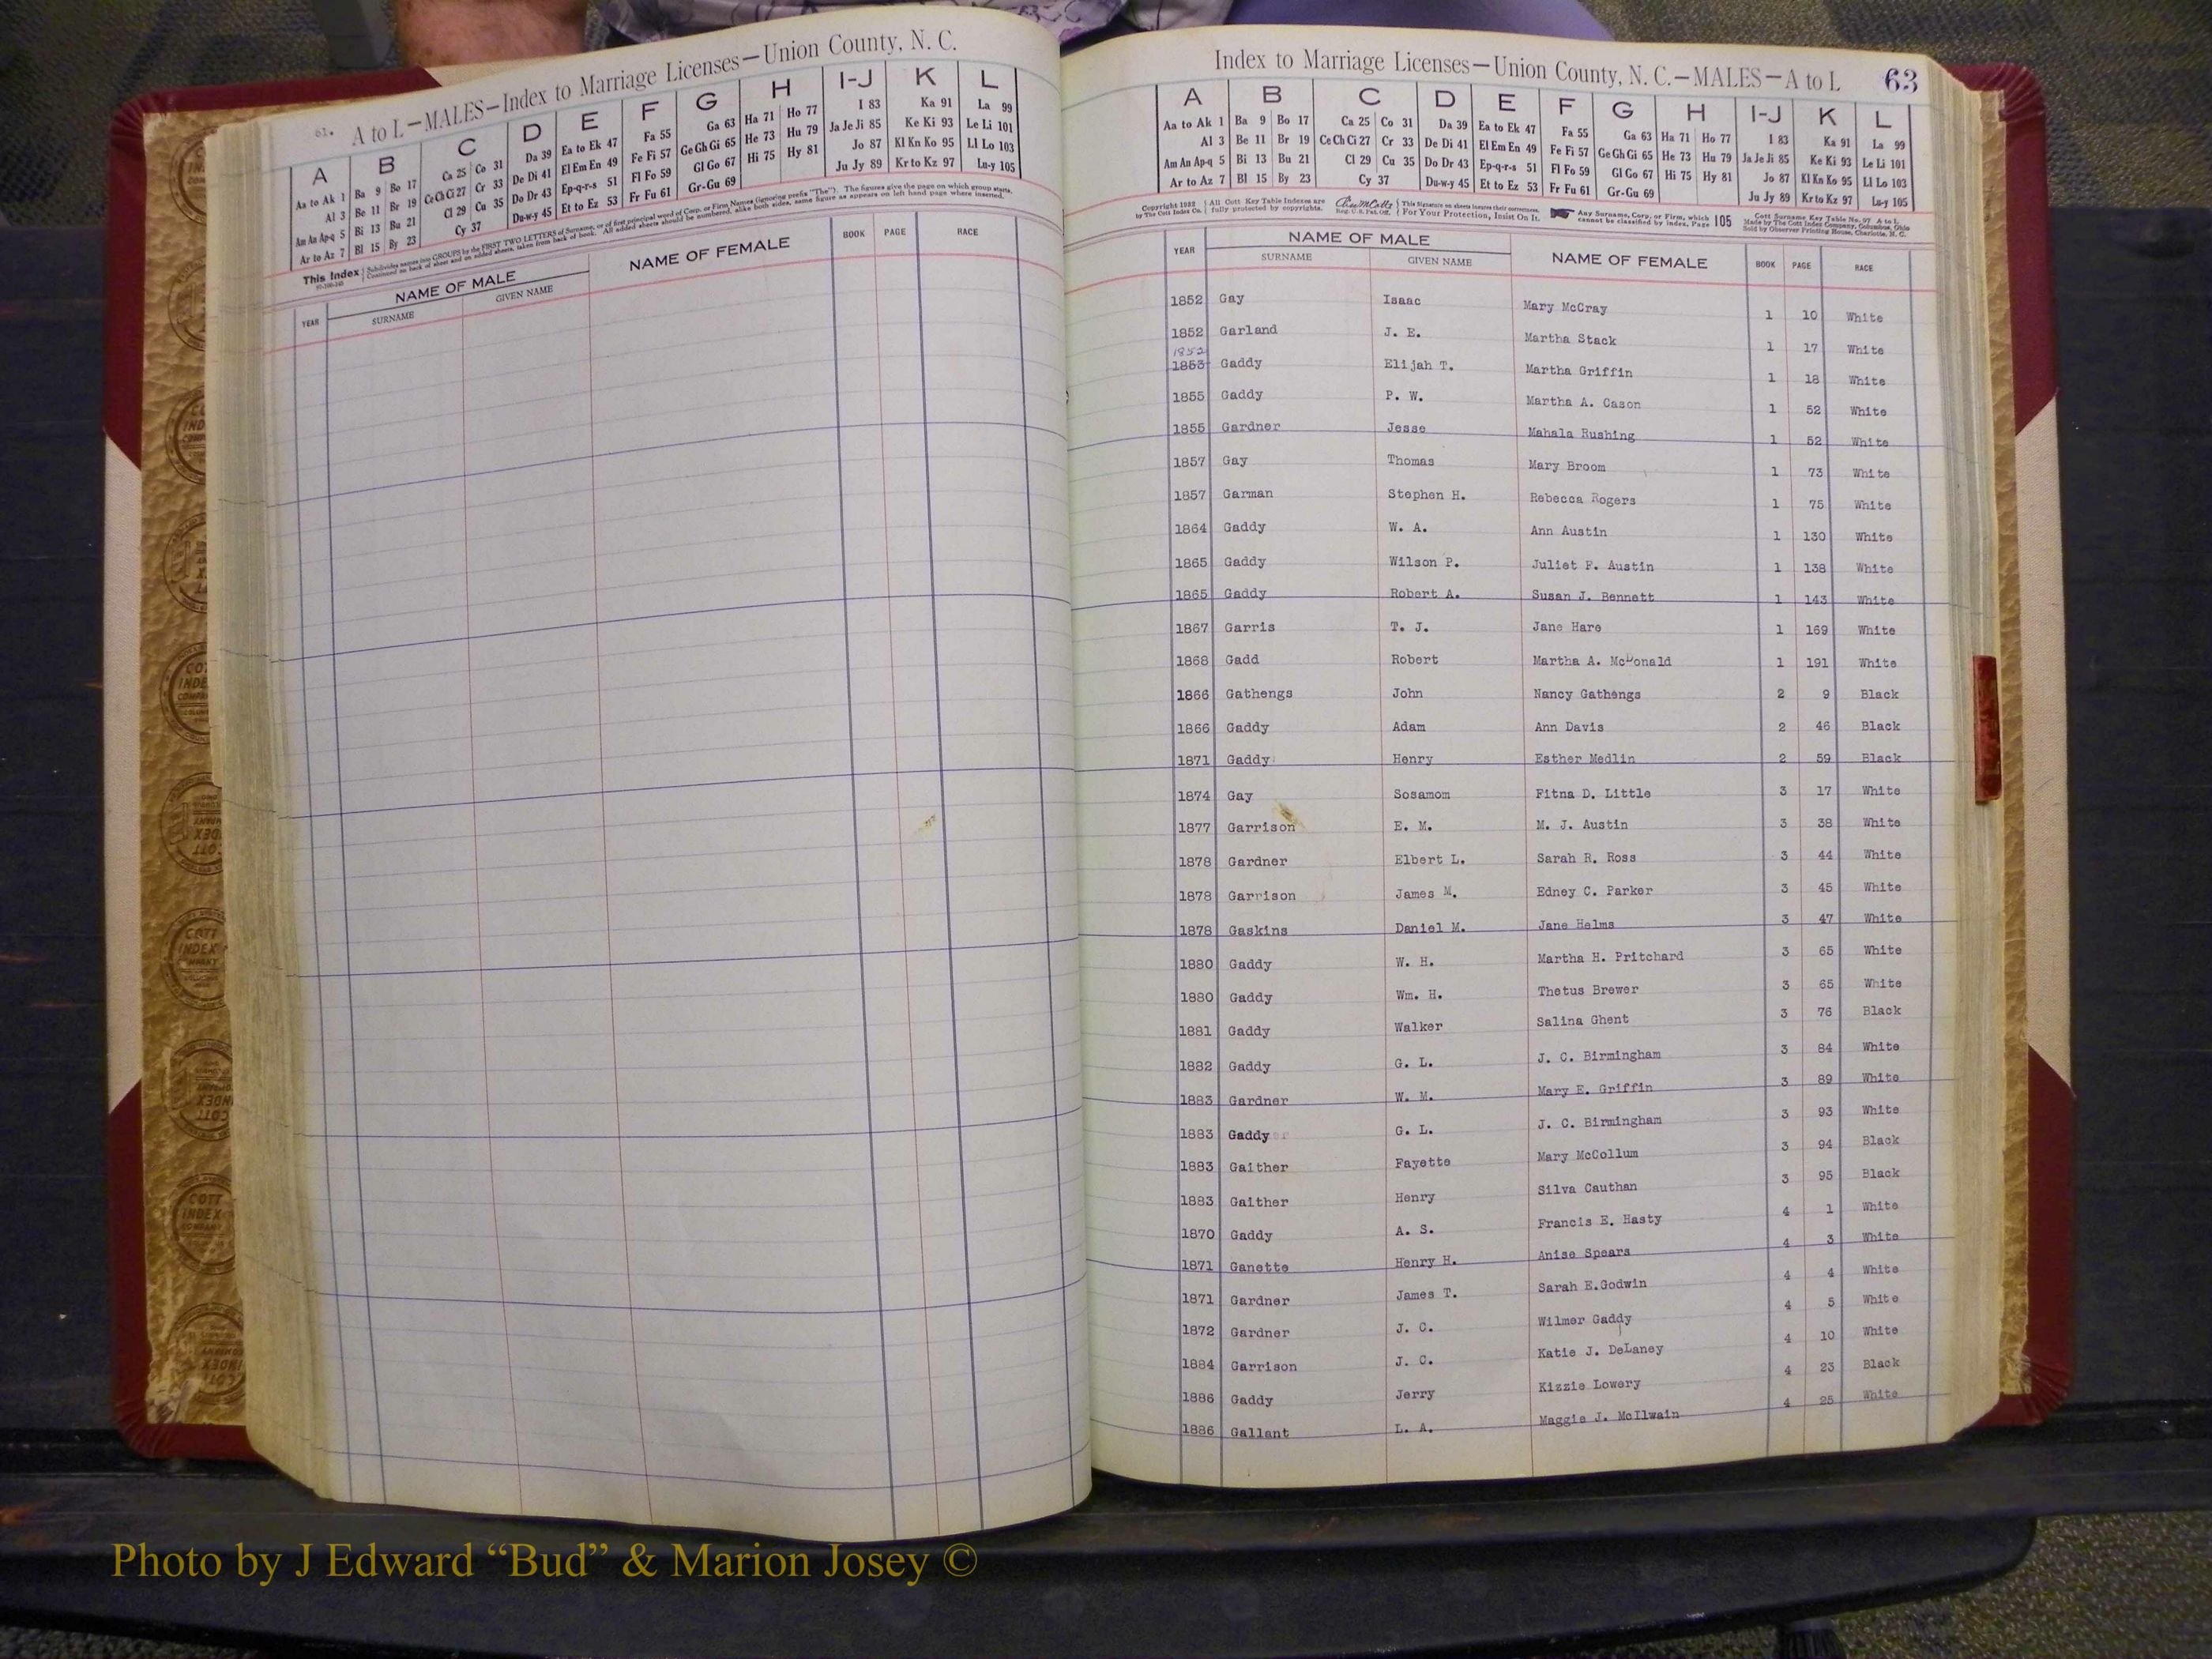 61.
A to L—MALES—Index to Marriage Licenses—Union County, N. C.
A B C D E F G H I-J K L
Aa to Ak 1 Ba 9 Bo 17 Ca 25 Co 31 Da 39 Ea to Ek 47 Fa 55 Ga 63 Ha 71 Ho 77 I 83 Ka 91 La 99
Al 3 Be 11 Br 19 Ce Ch Ci 27 Cr 33 De Di 41 El Em En 49 Fe Fi 57 Ge Gh Gi 65 He 73 Hu 79 Ja Je Ji 85 Ke Ki 93 Le Li 101
Am An Ap-q 5 Bi 13 Bu 21 Cl 29 Cu 35 Do Dr 43 Ep-q-r-s 51 Fl Fo 59 Gl Go 67 Hi 75 Hy 81 Jo 87 Kl Kn Ko 95 Ll Lo 103
Ar to Az 7 Bl 15 By 23 Cy 37 Du-w-y 45 Et to Ez 53 Fr Fu 61 Gr-Gu 69 Ju Jy 89 Kr to Kz 97 Lu-y 105
This Index Subdivides names into GROUPS by the FIRST TWO LETTERS of Surname, or of first principal word of Corp. or Firm Names (ignoring prefix "The"). The figures give the page on which group starts.
Continued on back of sheet and on added sheets, taken from back of book. All added sheets should be numbered, alike both sides, same figure as appears on left hand page where inserted.
YEAR NAME OF MALE NAME OF FEMALE BOOK PAGE RACE
SURNAME GIVEN NAME
Index to Marriage Licenses—Union County, N. C.—MALES—A to L 63
A B C D E F G H I-J K L
Aa to Ak 1 Ba 9 Bo 17 Ca 25 Co 31 Da 39 Ea to Ek 47 Fa 55 Ga 63 Ha 71 Ho 77 I 83 Ka 91 La 99
Al 3 Be 11 Br 19 Ce Ch Ci 27 Cr 33 De Di 41 El Em En 49 Fe Fi 57 Ge Gh Gi 65 He 73 Hu 79 Ja Je Ji 85 Ke Ki 93 Le Li 101
Am An Ap-q 5 Bi 13 Bu 21 Cl 29 Cu 35 Do Dr 43 Ep-q-r-s 51 Fl Fo 59 Gl Go 67 Hi 75 Hy 81 Jo 87 Kl Kn Ko 95 Ll Lo 103
Ar to Az 7 Bl 15 By 23 Cy 37 Du-w-y 45 Et to Ez 53 Fr Fu 61 Gr-Gu 69 Ju Jy 89 Kr to Kz 97 Lu-y 105
Copyright 1932 by The Cott Index Co. All Cott Key Table Indexes are fully protected by copyrights. Reg. U.S. Pat. Off. This Signature on sheets insures their correctness. For Your Protection, Insist On It. Any Surname, Corp. or Firm, which cannot be classified by Index, Page 105 Cott Surname Key Table No. 97 A to L Made by The Cott Index Company, Columbus, Ohio Sold by Observer Printing House, Charlotte, N. C.
YEAR NAME OF MALE NAME OF FEMALE BOOK PAGE RACE
SURNAME GIVEN NAME
1852 Gay Isaac Mary McCray 1 10 White
1852 Garland J. E. Martha Stack 1 17 White
1852
1853 Gaddy Elijah T. Martha Griffin 1 18 White
1855 Gaddy P. W. Martha A. Cason 1 52 White
1855 Gardner Jesse Mahala Rushing 1 52 White
1857 Gay Thomas Mary Broom 1 73 White
1857 Garman Stephen H. Rebecca Rogers 1 75 White
1864 Gaddy W. A. Ann Austin 1 130 White
1865 Gaddy Wilson P. Juliet F. Austin 1 138 White
1865 Gaddy Robert A. Susan J. Bennett 1 143 White
1867 Garris T. J. Jane Hare 1 169 White
1868 Gadd Robert Martha A. McDonald 1 191 White
1866 Gathengs John Nancy Gathengs 2 9 Black
1866 Gaddy Adam Ann Davis 2 46 Black
1871 Gaddy Henry Esther Medlin 2 59 Black
1874 Gay Sosamom Fitna D. Little 3 17 White
1877 Garrison E. M. M. J. Austin 3 38 White
1878 Gardner Elbert L. Sarah R. Ross 3 44 White
1878 Garrison James M. Edney C. Parker 3 45 White
1878 Gaskins Daniel M. Jane Helms 3 47 White
1880 Gaddy W. H. Martha H. Pritchard 3 65 White
1880 Gaddy Wm. H. Thetus Brewer 3 65 White
1881 Gaddy Walker Salina Ghent 3 76 Black
1882 Gaddy G. L. J. C. Birmingham 3 84 White
1883 Gardner W. M. Mary E. Griffin 3 89 White
1883 Gaddy G. L. J. C. Birmingham 3 93 White
1883 Gaither Fayette Mary McCollum 3 94 Black
1883 Gaither Henry Silva Cauthan 3 95 Black
1870 Gaddy A. S. Francis E. Hasty 4 1 White
1871 Ganette Henry H. Anise Spears 4 3 White
1871 Gardner James T. Sarah E.Godwin 4 4 White
1872 Gardner J. C. Wilmer Gaddy 4 5 White
1884 Garrison J. C. Katie J. DeLaney 4 10 White
1886 Gaddy Jerry Kizzie Lowery 4 23 Black
1886 Gallant L. A. Maggie J. McIlwain 4 25 White
Photo by J Edward “Bud” & Marion Josey ©